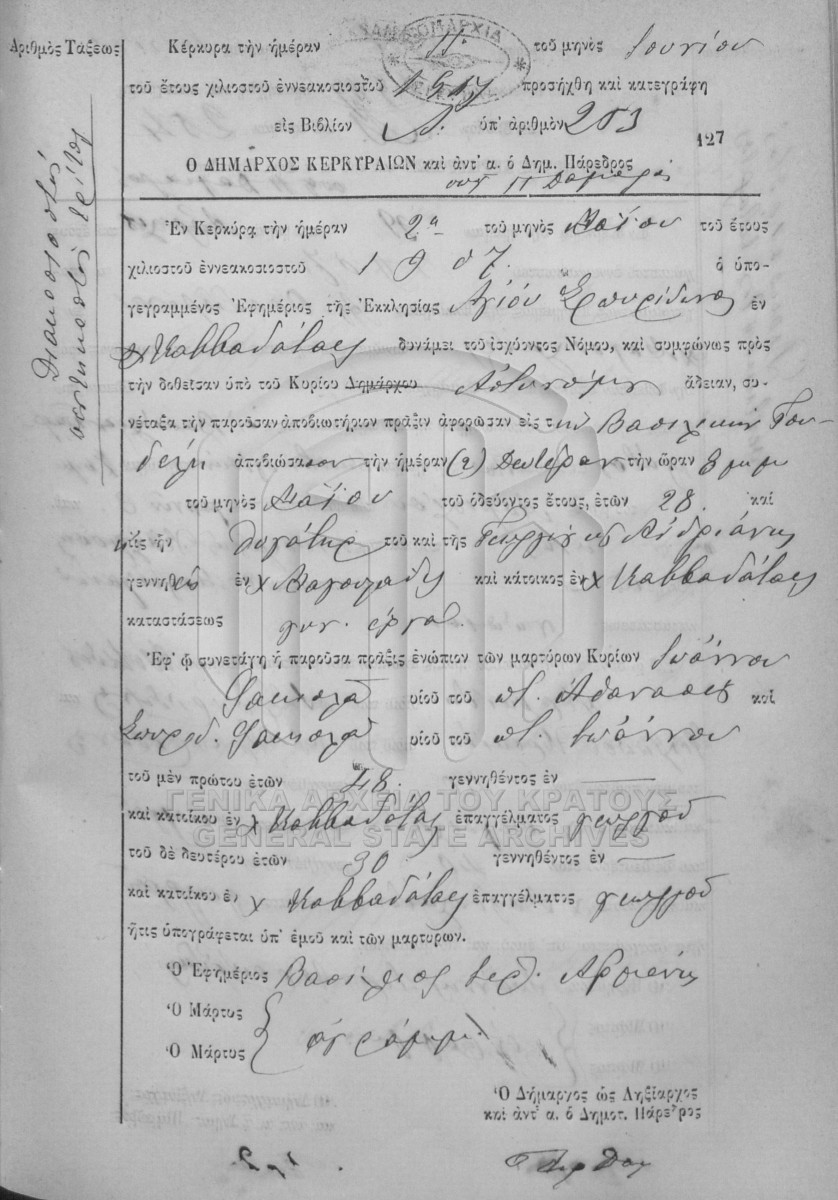 Ἀριθμὸς Τάξεως
Διακοσιοστὸς
πεντηκοστὸς τρίτος
ΔΗΜΑΡΧΙΑ
Κέρκυρα τὴν ἡμέραν 11 τοῦ μηνὸς Ἰουνίου
τοῦ ἔτους χιλιοστοῦ ἐννεακοσιοστοῦ 1907 προσήχθη καὶ κατεγράφη
εἰς Βιβλίον Α. ὑπ' ἀριθμὸν 253
127
Ο ΔΗΜΑΡΧΟΣ ΚΕΡΚΥΡΑΙΩΝ καὶ ἀντ' α. ὁ Δημ. Πάρεδρος
Ἐν Κερκύρᾳ τὴν ἡμέραν 2α τοῦ μηνὸς Μαΐου τοῦ ἔτους
χιλιοστοῦ ἐννεακοσιοστοῦ 1907. ὁ ὑπο-
γεγραμμένος Ἐφημέριος τῆς Ἐκκλησίας Ἁγίου Σπυρίδωνος ἐν
χ Καββαδάταις δυνάμει τοῦ ἰσχύοντος Νόμου, καὶ συμφώνως πρὸς
τὴν δοθεῖσαν ὑπὸ τοῦ Κυρίου Δημάρχου Ἀστυνόμου ἄδειαν, συ-
νέταξα τὴν παροῦσαν ἀποβιωτήριον πρᾶξιν ἀφορῶσαν εἰς τὴν Βασιλικὴν
ἀποβιώσασαν τὴν ἡμέραν (2) Δευτέραν τὴν ὥραν 8 μμ
τοῦ μηνὸς Μαΐου τοῦ ὁδεύοντος ἔτους, ἐτῶν 28. καὶ
ἥτις ἦν θυγάτηρ τοῦ καὶ τῆς Γεωργίου Ἀνδριάνης
γεννηθεῖσα ἐν χ καὶ κάτοικος ἐν χ Καββαδάταις
καταστάσεως γυν. ἐργα
Ἐφ' ᾧ συνετάγη ἡ παροῦσα πρᾶξις ἐνώπιον τῶν μαρτύρων Κυρίων Ἰωάννου
υἱοῦ τοῦ ποτ. Ἀθανασίου καὶ
Σπυρίδ. υἱοῦ τοῦ ποτ. Ἰωάννου
τοῦ μὲν πρώτου ἐτῶν 48. γεννηθέντος ἐν —
καὶ κατοίκου ἐν χ Καββαδάταις ἐπαγγέλματος γεωργοῦ
τοῦ δὲ δευτέρου ἐτῶν 30 γεννηθέντος ἐν —
καὶ κατοίκου ἐν χ Καββαδάταις ἐπαγγέλματος γεωργοῦ
ἥτις ὑπογράφεται ὑπ' ἐμοῦ καὶ τῶν μαρτύρων.
Ὁ Ἐφημέριος Βασίλειος ἱερ.
Ὁ Μάρτυς
Ὁ Μάρτυς ἀγράμματοι
Ὁ Δήμαρχος ὡς Ληξίαρχος
καὶ ἀντ' α. ὁ Δημοτ. Πάρεδρος
ΓΕΝΙΚΑ ΑΡΧΕΙΑ ΤΟΥ ΚΡΑΤΟΥΣ
GENERAL STATE ARCHIVES